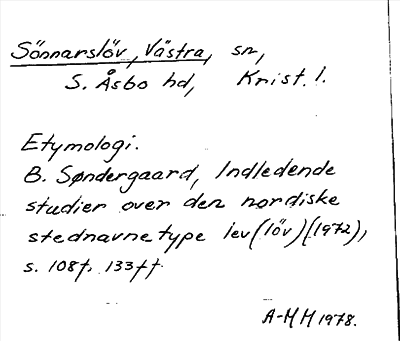 Sönnarslöv, Västra, sn,
S. Åsbo hd, Krist. l.
Etymologi.
B. Søndergaard, Indledende
studier over den nordiske
stednavnetype lev (löv) (1972),
s. 108f, 133ff.
A-MH 1978.